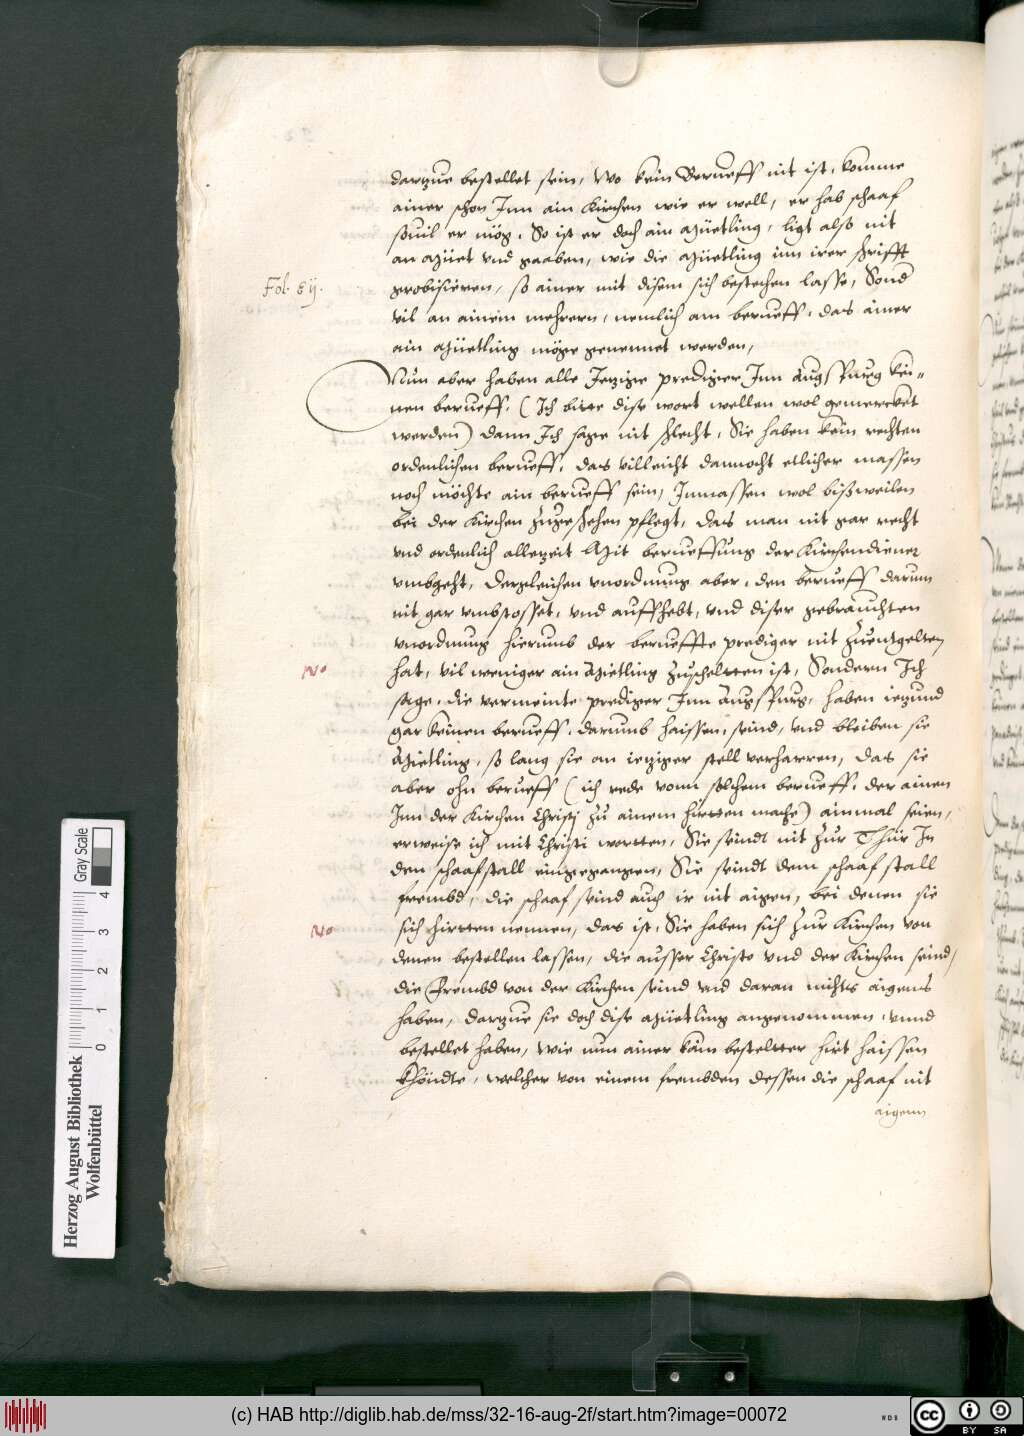 darzue bestellet sein, Wo kein Berueff nit ist, komme
ainer schon Inn ain Kirchen wie er well, er hab schaaf
souil er mög. So ist er doch ain Miietling, ligt also nit
an Miiet vnd gaaben, wie die Miietling inn irer schrifft
Fol. 8 ij.
probisieren, so ainer mit disem sich bestechen lasse, Sond
vil an ainem mehrern, nemlich am berueff, das ainer
ain Miietling möge genennet werden,
Nun aber haben alle Jezige prediger Inn Augspurg kei„
nen berueff. (Ich bitte dise wort wellen wol gemerckt
werden) dann Ich sage nit schlecht, Sie haben kein rechten
ordenlichen berueff, das villeicht dannocht etlicher massen
noch möchte ain berueff sein, Inmassen wol bißweilen
bei der Kirchen zugeschehen pflegt, das man nit gar recht
vnd ordenlich allezeit Mit berueffung der Kirchendiener
vmbgeht, dergleichen vnordnung aber, den berueff darum
nit gar vmbstosset, vnd auffhebt, vnd diser gebrauchten
vnordnung hierumb der berueffte prediger nit zuentgelten
No
hat, vil weniger ain Mietling zuschelten ist, Sondern Ich
sage, die vermeinte prediger Inn Augspurg, haben iezund
gar keinen berueff, darumb haissen, seind, vnd bleiben sie
Mietling, so lang sie an ieziger stell verharren, Das sie
aber ohn berueff (ich rede vonn solchem berueff, der ainen
Inn der Kirchen Christi zu ainem hirtten mache) ainmal seien,
erweise ich mit Christi wortten, Sie seindt nit zur Thür In
den schaafstall eingegangen, Sie seindt dem schaaf stall
frembd, die schaaf seind auch ir nit aigen, bei denen sie
No
sich hirtten nennen, das ist, Sie haben sich zur Kirchen von
denen bestellen lassen, die ausser Christo vnd der Kirchen seind,
die frembd von der Kirchen seind vnd daran nichts aigens
haben, darzue sie doch dise Miietling angenommen, vnnd
bestellet haben, Wie nun ainer kain bestelter hirt haissen
khöndte, welcher von einem frembden dessen die schaaf nit
aigenn
Herzog August Bibliothek
Wolfenbüttel
0 1 2 3 4
Gray Scale
(c) HAB http://diglib.hab.de/mss/32-16-aug-2f/start.htm?image=00072
WDB
cc BY SA